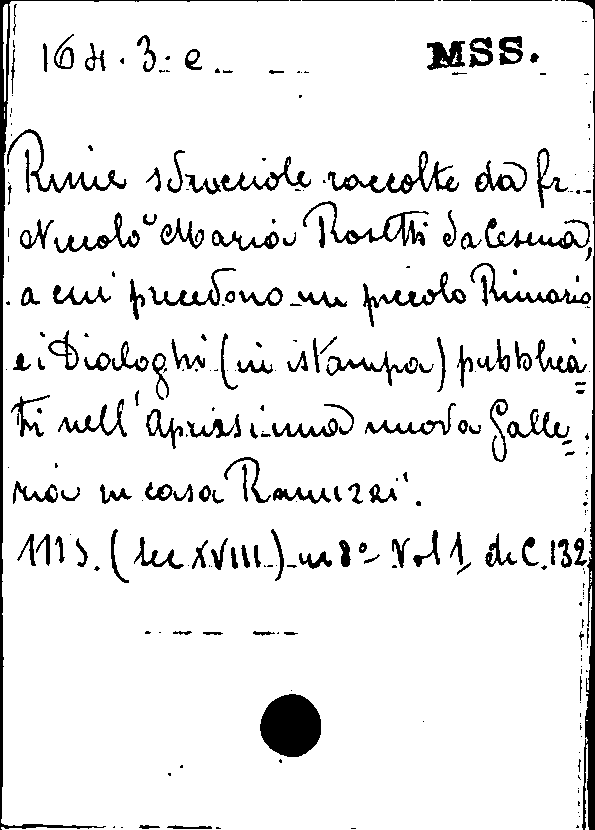 164. 3. e. MSS.
Rime sdrucciole raccolte da fr.
Niccolò Maria Rosetti da Cesena,
a cui precedono un piccolo Rimario
e i Dialoghi (in istampa) pubblica=
ti nell'aprirsi una nuova Galle=
ria in casa Ranuzzi.
MS. (sec XVIII) in 8º Vol 1 di C. 132